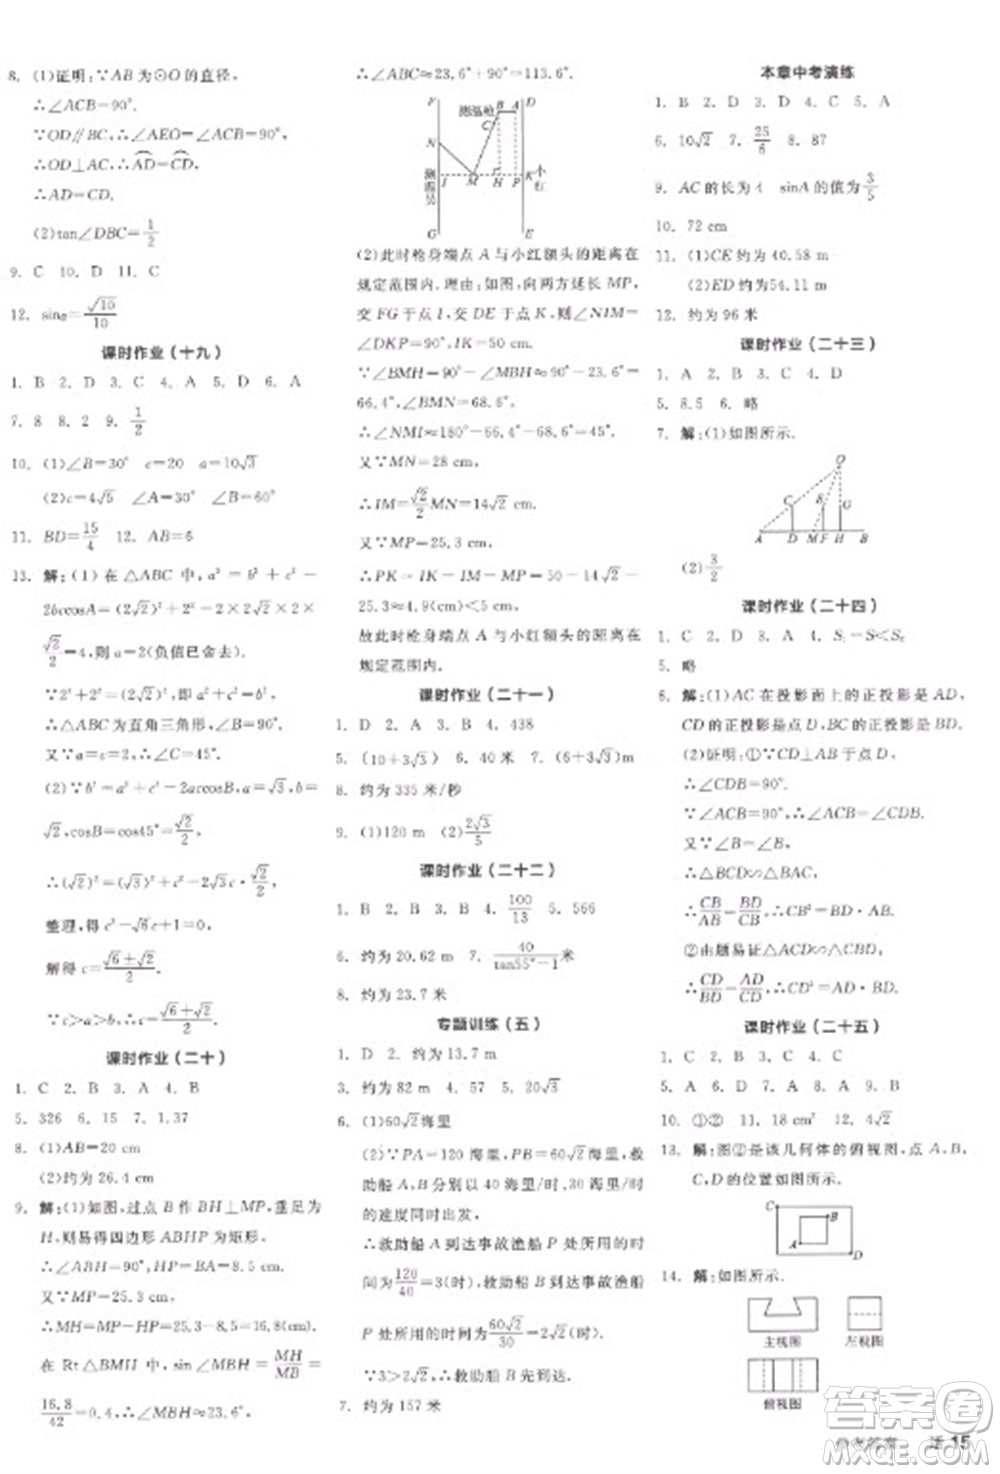 8. (1)证明:∵AB为⊙O的直径,
∴∠ACB=90°.
∵OD∥BC,∴∠AEO=∠ACB=90°,
∴OD⊥AC,∴AD=CD,
∴AD=CD.
(2)tan∠DBC=1/2
9. C 10. D 11. C
12. sinα=√10/10
课时作业(十九)
1. B 2. D 3. C 4. A 5. D 6. A
7. 8 8. 2 9. 1/2
10. (1)∠B=30° c=20 a=10√3
(2)c=4√5 ∠A=30° ∠B=60°
11. BD=15/4 12. AB=6
13. 解:(1)在△ABC中,a²=b²+c²-
2bccosA=(2√2)²+2²-2×2√2×2×
√2/2=4,则a=2(负值已舍去).
∵2²+2²=(2√2)²,即a²+c²=b²,
∴△ABC为直角三角形,∠B=90°.
又∵a=c=2,∴∠C=45°.
(2)∵b²=a²+c²-2accosB,a=√3,b=
√2,cosB=cos45°=√2/2,
∴(√2)²=(√3)²+c²-2√3c·√2/2,
整理,得c²-√6c+1=0,
解得c=(√6±√2)/2.
∵c>a>b,∴c=(√6+√2)/2.
课时作业(二十)
1. C 2. B 3. A 4. B
5. 326 6. 15 7. 1.37
8. (1)AB=20 cm
(2)约为26.4 cm
9. 解:(1)如图,过点B作BH⊥MP,垂足为
H,则易得四边形ABHP为矩形.
∴∠ABH=90°,HP=BA=8.5 cm.
又∵MP=25.3 cm,
∴MH=MP-HP=25.3-8.5=16.8(cm).
在Rt△BMH中,sin∠MBH=MH/MB=
16.8/42=0.4,∴∠MBH≈23.6°,
∴∠ABC≈23.6°+90°=113.6°.
F B A D
测温枪
C
N
测温员 I M H P K 小红
G E
(2)此时枪身端点A与小红额头的距离在
规定范围内.理由:如图,延长MP,
交FG于点I,交DE于点K,则
∠DKP=90°.
∵∠BMH=90°-∠MBH≈90°-23.6°=
66.4°,∠BMN=68.6°,
∴∠NMI≈180°-66.4°-68.6°=45°.
又∵MN=28 cm,
∴IM=√2/2MN=14√2 cm.
又∵MP=25.3 cm,
∴PK=IK-IM-MP≈50-14√2-
25.3≈4.9(cm)<5 cm,
故此时枪身端点A与小红额头的距离在
规定范围内.
课时作业(二十一)
1. D 2. A 3. B 4. 438
5. (10+3√3) 6. 40米 7. (6+3√3)m
8. 约为335米/秒
9. (1)120 m (2)2√3/5
课时作业(二十二)
1. B 2. B 3. B 4. 100/13 5. 566
6. 约为20.62 m 7. 40/(tan55°-1)米
8. 约为23.7米
专题训练(五)
1. D 2. 约为13.7 m
3. 约为82 m 4. 57 5. 22√3
6. (1)60√2海里
(2)∵PA=120海里,PB=60√2海里,救助
船A,B分别以40海里/时,30海里/时的
速度同时出发,
∴救助船A到达事故渔船P处所用的时
间为120/40=3(时),救助船B到达事故渔船
P处所用的时间为60√2/30=2√2(时).
∵3>2√2,∴救助船B先到达.
7. 约为157米
本章中考演练
1. B 2. D 3. C 4. D 5. A
6. 10√2 7. 25/6 8. 87
9. AC的长为4 sinA的值为3/5
10. 72 cm
11. (1)CE约为40.58 m
(2)ED约为54.11 m
12. 约为96米
课时作业(二十三)
1. A 2. C 3. C 4. D
5. 8.5 6. 略
7. 解:(1)如图所示.
O
C E G
A D M F H B
(2)3/2
课时作业(二十四)
1. C 2. D 3. D 4. S₁=S<S₂
5. 略
6. 解:(1)AC在投影面上的正投影是AD,
CD的正投影是点D,BC的正投影是BD.
(2)证明:①∵CD⊥AB于点D,
∴∠CDB=90°.
∵∠ACB=90°,∴∠ACB=∠CDB.
又∵∠B=∠B,
∴△BCD∽△BAC,
∴CB/AB=BD/CB,∴CB²=BD·AB.
②由题易证△ACD∽△CBD,
∴CD/BD=AD/CD,∴CD²=AD·BD.
课时作业(二十五)
1. C 2. C 3. B 4. B
5. A 6. D 7. D 8. A 9. C
10. ①② 11. 18 cm² 12. 4√2
13. 解:图②是该几何体的俯视图,点A,B,
C,D的位置如图所示.
C B
A D
14. 解:如图所示.
主视图 左视图
俯视图
参考答案 活 15
答案圈